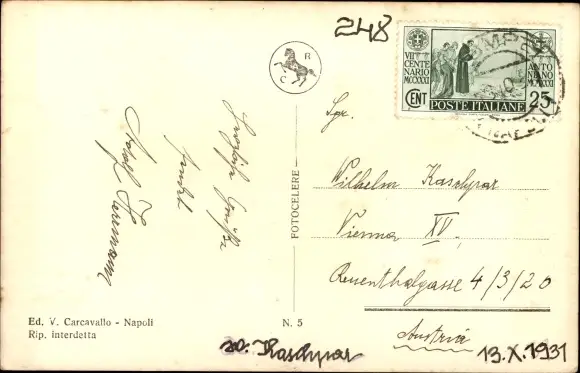 248
VII CENTENARIO MCMXXXI
ANTONIANO MCMXXXI
CENT
POSTE ITALIANE
25
C R
Sgr.
Wilhelm Kaschpar
Vienna XV,
Reuenthalgasse 4/3/20
Austria
FOTOCELERE
Herzliche Grüße
sendet
Ed. V. Carcavallo - Napoli
Rip. interdetta
N. 5
Kaschpar
13.X.1931